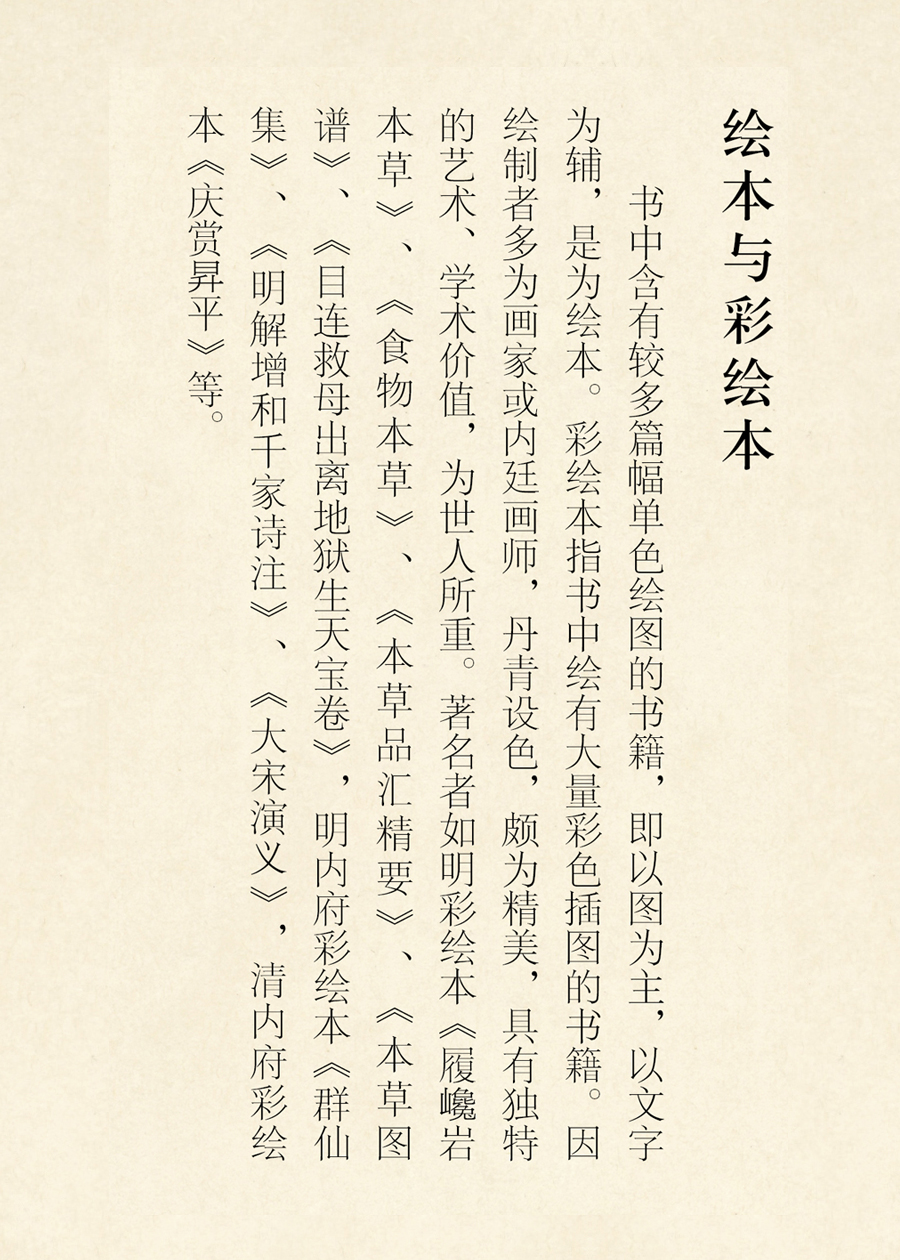 绘本与彩绘本
书中含有较多篇幅单色绘图的书籍，即以图为主，以文字
为辅，是为绘本。彩绘本指书中绘有大量彩色插图的书籍。因
绘制者多为画家或内廷画师，丹青设色，颇为精美，具有独特
的艺术、学术价值，为世人所重。著名者如明彩绘本《履巉岩
本草》、《食物本草》、《本草品汇精要》、《本草图
谱》、《目连救母出离地狱生天宝卷》，明内府彩绘本《群仙
集》、《明解增和千家诗注》、《大宋演义》，清内府彩绘
本《庆赏昇平》等。